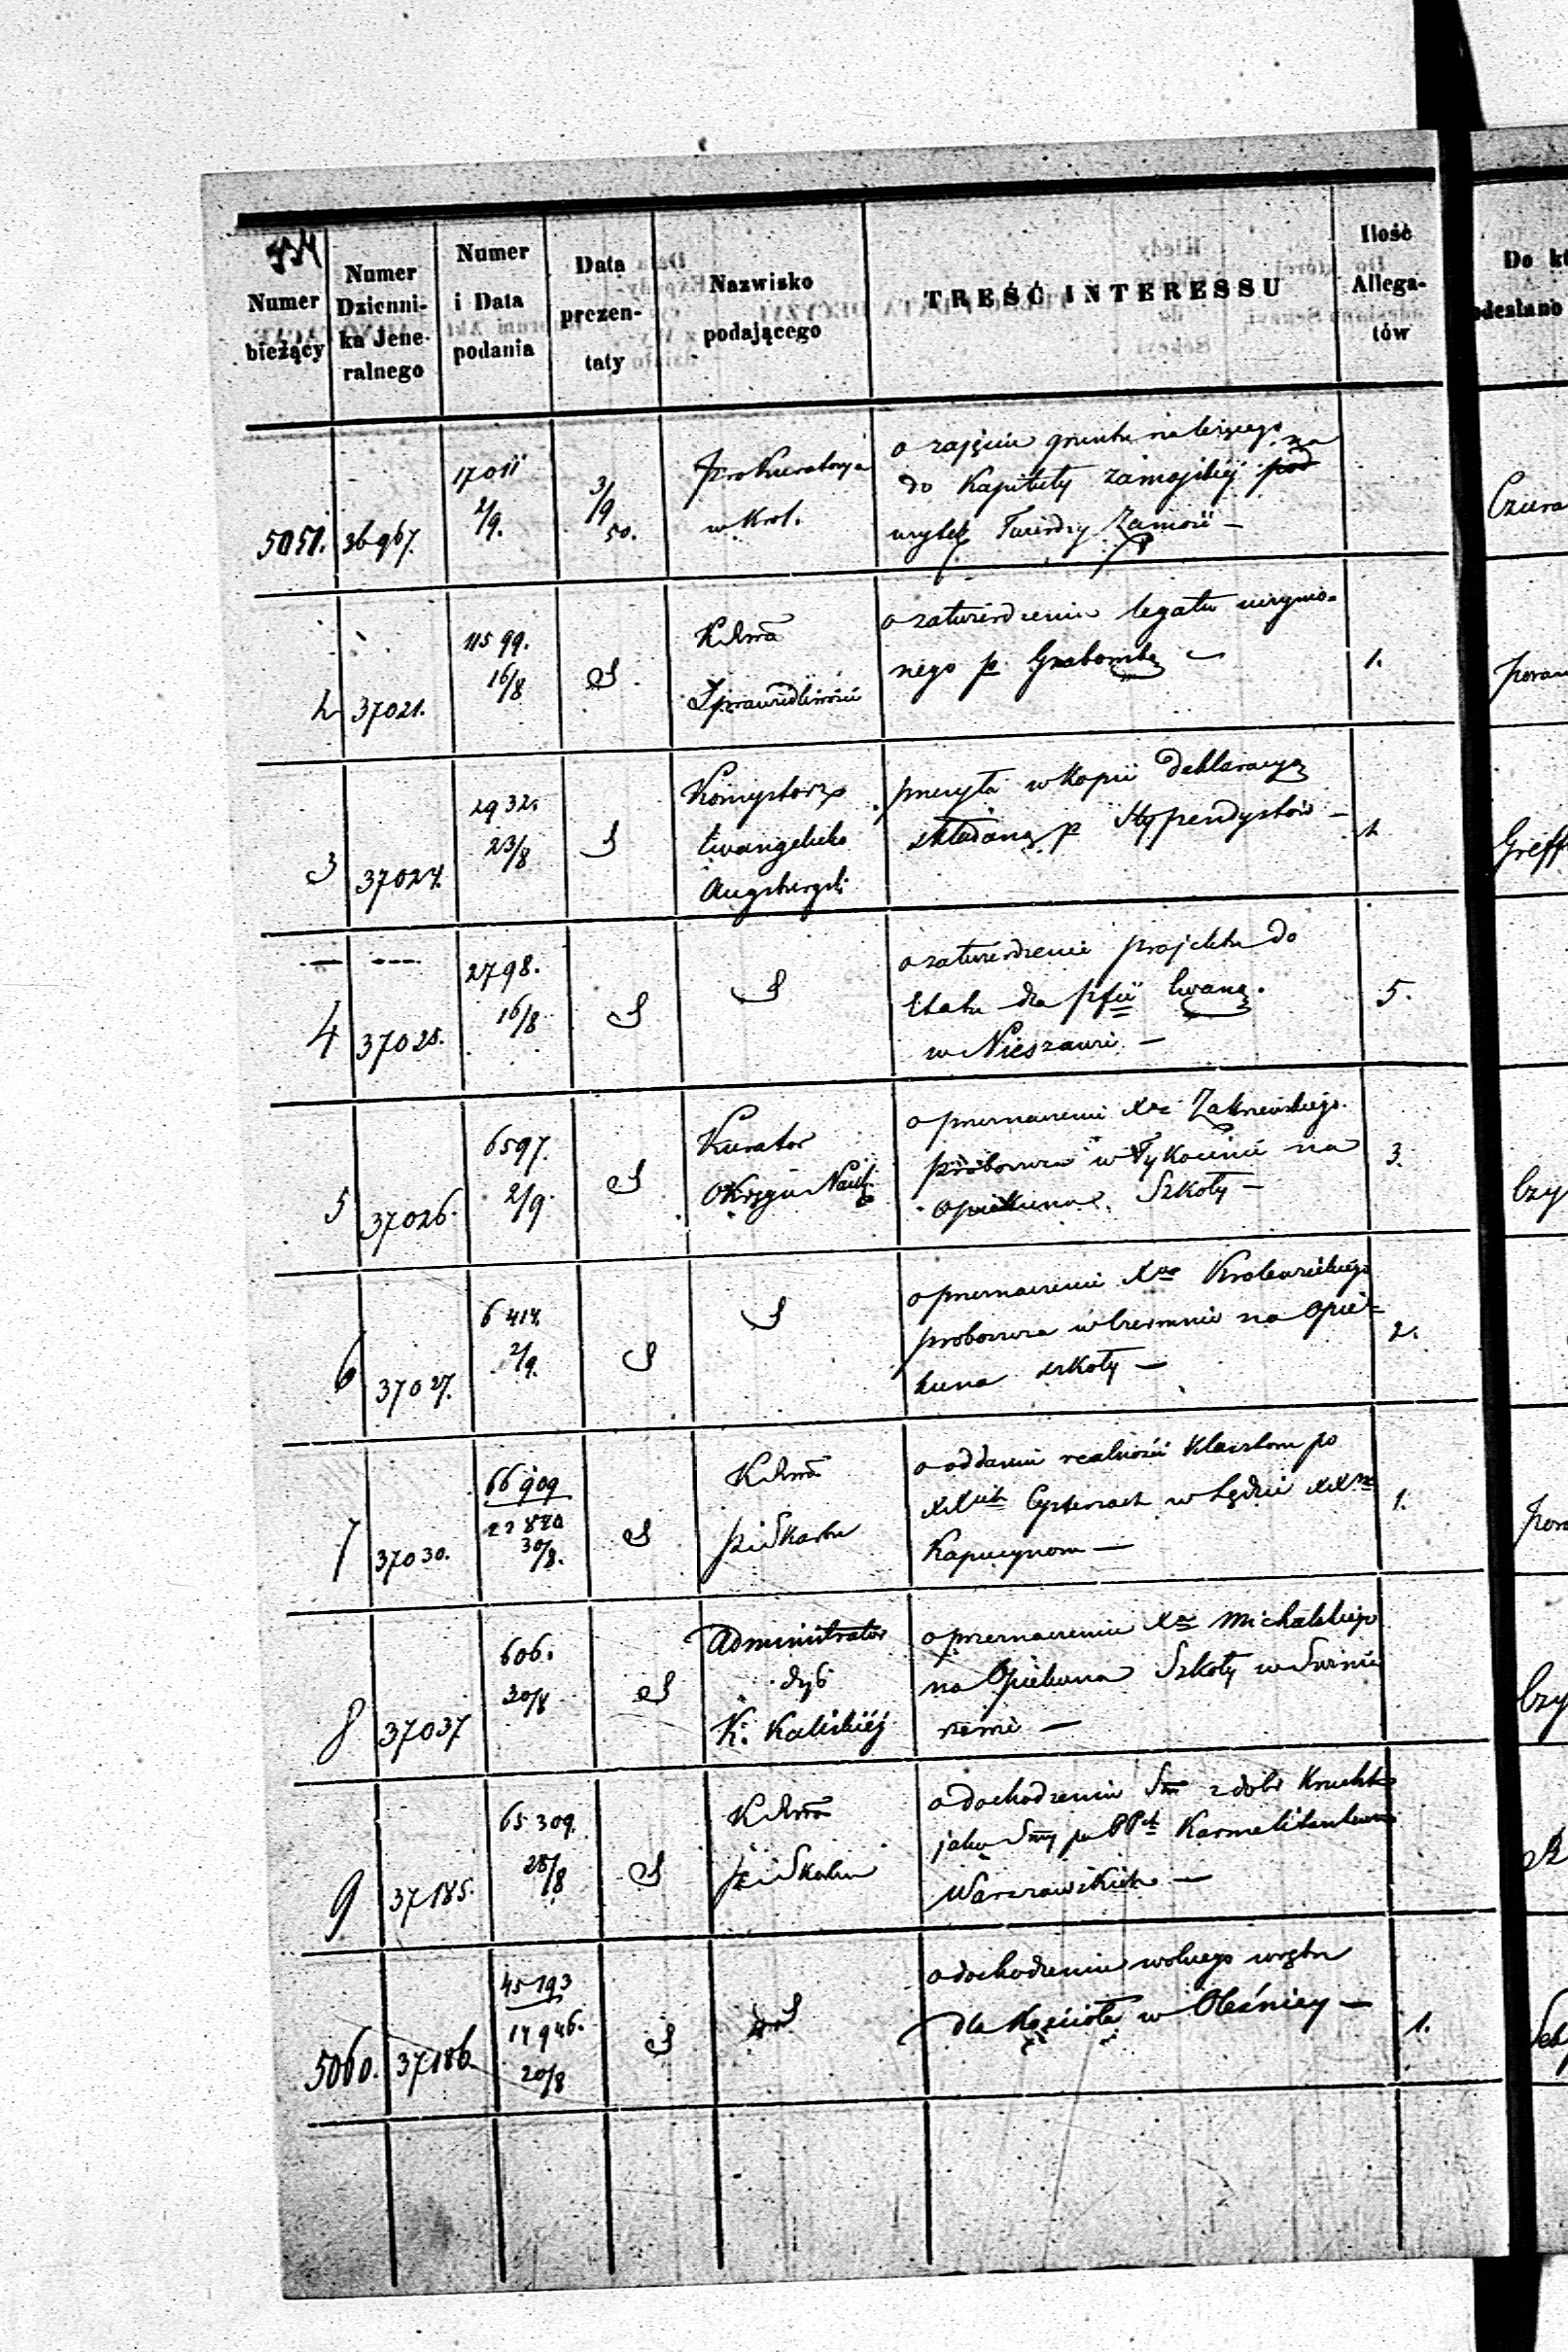 Numer bieżący
Numer Dzienni- ka Jene- ralnego
Numer i Data podania
Data prezen- taty
Nazwisko podającego
TREŚĆ INTERESSU
Ilość Allega- tów
5051. 36967. 17011 2/9. 3/9 50.
Prokuratorya
w Krol.
o zajęciu gruntu należącego
do Kapituły Zamojskiéj pod na
użytek Twierdzy Zamość –
2 37021. 11599. 16/8
Sprawiedliwości
o zatwierdzenie legatu uczynio-
nego p. Grabowską
1.
3 37024. 2932. 23/8
Konsystorz
Ewangelicko
Augsburgski
przesyła w kopii deklaracyą
składaną p Stypendystów –
4 37025. 2798. 16/8
o zatwierdzenie projektu do
Etatu dla pfii Ewang.
w Nieszawie –
5.
5 37026. 6597. 2/9.
Kurator
Okręgu Nauk.
o przeznaczeniu Xdza Zakrzewskiego
proboszcza w Tykocinie na
Opiekuna Szkoły –
3.
6 37027. 6414. 2/9.
o przeznaczenie Xdza
proboszcza w Czermnie na Opie-
kuna szkoły –
2.
7 37030. 66909 30/8.
Skarbu
o oddaniu realności Klasztoru po
Cystersach w Lądzie
Kapucynom –
1.
8 37037 606. 30/8
Administrator
dyć
K. Kaliskiéj
o przeznaczeniu Xdza Michalskiego
na Opiekuna Szkoły w
9 37185. 65309. 28/8
Skarbu
o dochodzeniu z dóbr
jako po PP Karmelitankach
Warszawskich –
5060. 37186 45193 14946. 20/8
o dochodzenie wolnego wrębu
dla Kościoła w Oleśnicy –
1.
Do kt
odesłano
Greff